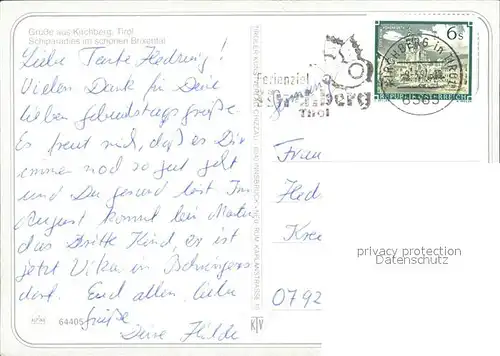 Grüße aus Kirchberg, Tirol
Schiparadies im schönen Brixental
Liebe Tante Hedwig!
Vielen Dank für Deine
lieben Geburtstagsgrüße.
Es freut mich, daß es Dir
immer noch so gut geht
und Du gesund bist. Im
August kommt bein Martin
das Dritte Kind, er ist
jetzt Vikar in
dorf. Euch allen liebe
Grüße
Deine Hilde
64405
KTV
Ferienziel
Tirol
KIRCHBERG IN TIROL
6365
6s
REPUBLIK ÖSTERREICH
Frau
Hed
Kre
0792
privacy protection
Datenschutz